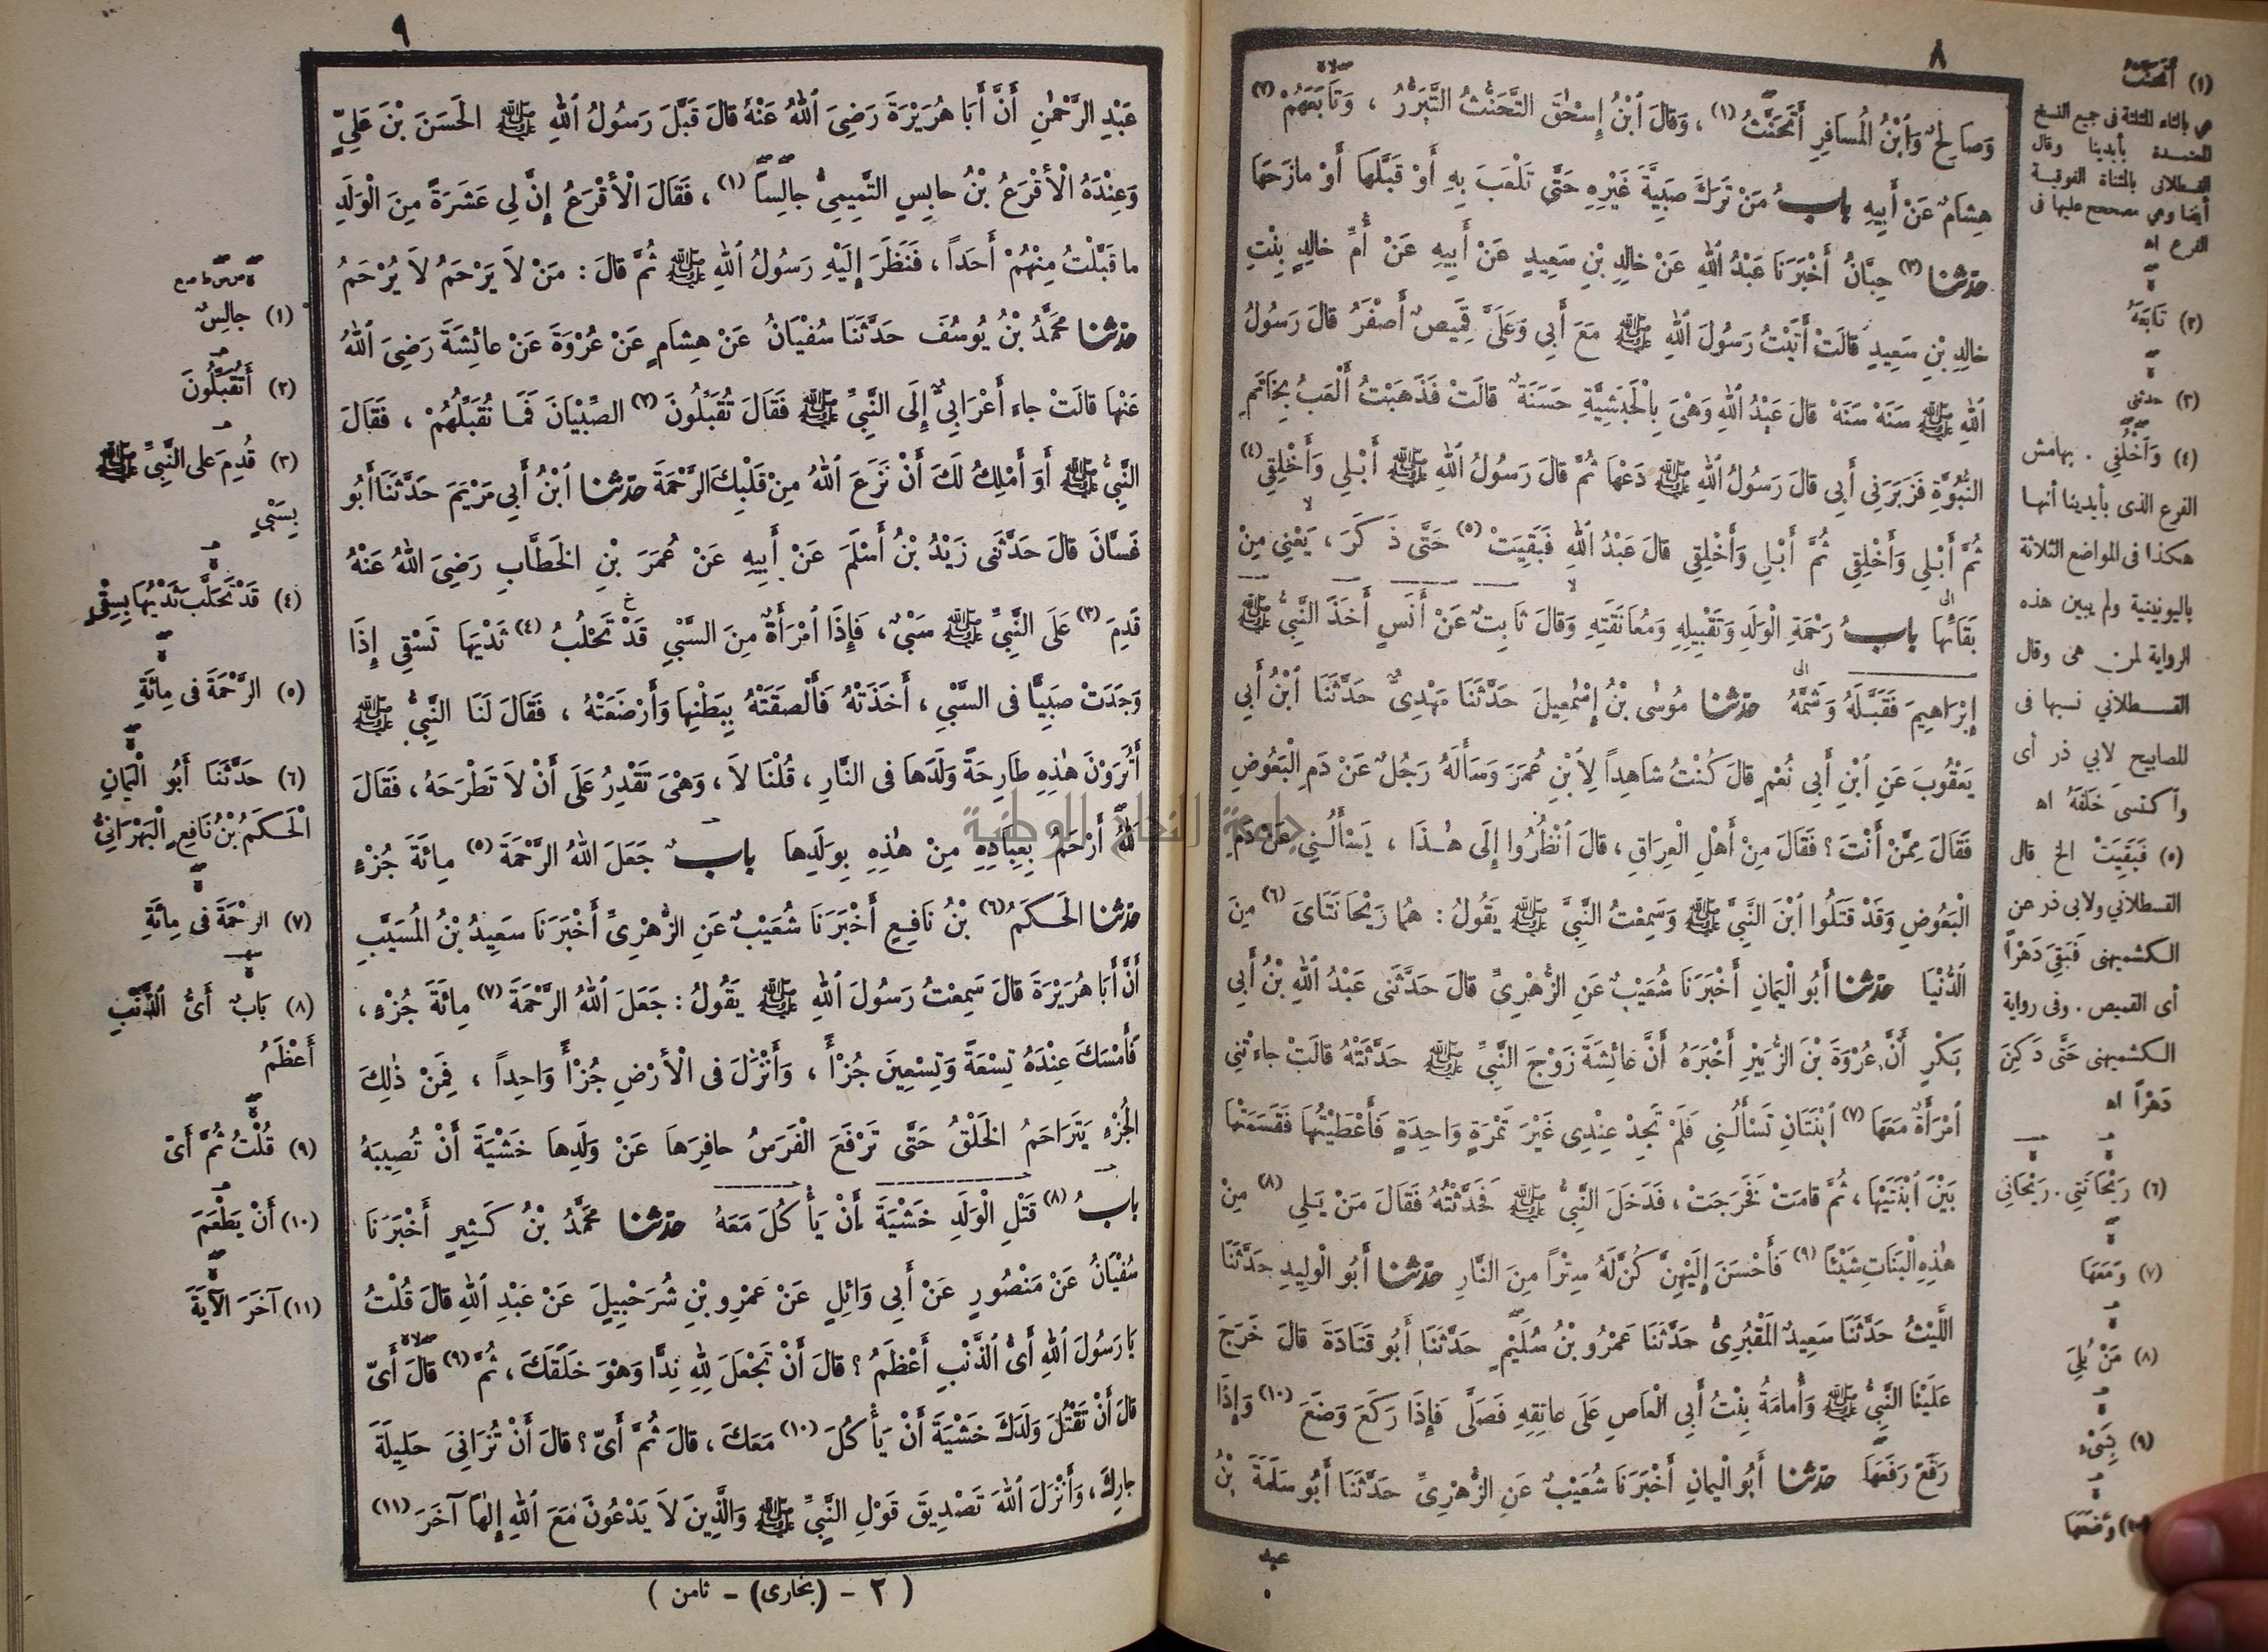 ٨
وَصَالِحٌ وَٱبْنُ الْمُسَافِرِ أَتَحَنَّثُ (١) ، وَقَالَ ٱبْنُ إِسْحٰقَ التَّحَنُّثُ التَّبَرُّرُ ، وَتَابَعَهُمْ (٢)
هِشَامٌ عَنْ أَبِيهِ بابُ مَنْ تَرَكَ صَبِيَّةَ غَيْرِهِ حَتَّى تَلْعَبَ بِهِ أَوْ قَبَّلَهَا أَوْ مَازَحَهَا
حدثنا (٣) حِبَّانُ أَخْبَرَنَا عَبْدُ ٱللهِ عَنْ خَالِدِ بْنِ سَعِيدٍ عَنْ أَبِيهِ عَنْ أُمِّ خَالِدٍ بِنْتِ
خَالِدِ بْنِ سَعِيدٍ قَالَتْ أَتَيْتُ رَسُولَ ٱللهِ ﷺ مَعَ أَبِي وَعَلَىَّ قَمِيصٌ أَصْفَرُ قَالَ رَسُولُ
ٱللهِ ﷺ سَنَهْ سَنَهْ قَالَ عَبْدُ ٱللهِ وَهْىَ بِالْحَبَشِيَّةِ حَسَنَةٌ قَالَتْ فَذَهَبْتُ أَلْعَبُ بِخَاتَمِ
النُّبُوَّةِ فَزَبَرَنِى أَبِى قَالَ رَسُولُ ٱللهِ ﷺ دَعْهَا ثُمَّ قَالَ رَسُولُ ٱللهِ ﷺ أَبْلِي وَأَخْلِقِي (٤)
ثُمَّ أَبْلِي وَأَخْلِقِي ثُمَّ أَبْلِي وَأَخْلِقِي قَالَ عَبْدُ ٱللهِ فَبَقِيَتْ (٥) حَتَّى ذَكَرَ ، يَعْنِي مِنْ
بَقَائِهَا بابُ رَحْمَةِ الْوَلَدِ وَتَقْبِيلِهِ وَمُعَانَقَتِهِ وَقَالَ ثَابِتٌ عَنْ أَنَسٍ أَخَذَ النَّبِيُّ ﷺ
إِبْرَاهِيمَ فَقَبَّلَهُ وَشَمَّهُ حدثنا مُوسٰى بْنُ إِسْمٰعِيلَ حَدَّثَنَا مَهْدِيٌّ حَدَّثَنَا ٱبْنُ أَبِي
يَعْقُوبَ عَنِ ٱبْنِ أَبِي نُعْمٍ قَالَ كُنْتُ شَاهِداً لِٱبْنِ عُمَرَ وَسَأَلَهُ رَجُلٌ عَنْ دَمِ الْبَعُوضِ
فَقَالَ مِمَّنْ أَنْتَ ؟ فَقَالَ مِنْ أَهْلِ الْعِرَاقِ ، قَالَ ٱنْظُرُوا إِلَى هٰذَا ، يَسْأَلُنِي عَنْ دَمِ
الْبَعُوضِ وَقَدْ قَتَلُوا ٱبْنَ النَّبِيِّ ﷺ وَسَمِعْتُ النَّبِيَّ ﷺ يَقُولُ : هُمَا رَيْحَانَتَاىَ (٦) مِنَ
الدُّنْيَا حدثنا أَبُو الْيَمَانِ أَخْبَرَنَا شُعَيْبٌ عَنِ الزُّهْرِيِّ قَالَ حَدَّثَنِى عَبْدُ ٱللهِ بْنُ أَبِي
بَكْرٍ أَنَّ عُرْوَةَ بْنَ الزُّبَيْرِ أَخْبَرَهُ أَنَّ عَائِشَةَ زَوْجَ النَّبِيِّ ﷺ حَدَّثَتْهُ قَالَتْ جَاءَتْنِي
ٱمْرَأَةٌ مَعَهَا (٧) ٱبْنَتَانِ تَسْأَلُنِي فَلَمْ تَجِدْ عِنْدِي غَيْرَ تَمْرَةٍ وَاحِدَةٍ فَأَعْطَيْتُهَا فَقَسَمَتْهَا
بَيْنَ ٱبْنَتَيْهَا ، ثُمَّ قَامَتْ فَخَرَجَتْ ، فَدَخَلَ النَّبِيُّ ﷺ فَحَدَّثْتُهُ فَقَالَ مَنْ يَلِي (٨) مِنْ
هٰذِهِ الْبَنَاتِ شَيْئًا (٩) فَأَحْسَنَ إِلَيْهِنَّ كُنَّ لَهُ سِتْراً مِنَ النَّارِ حدثنا أَبُو الْوَلِيدِ حَدَّثَنَا
اللَّيْثُ حَدَّثَنَا سَعِيدٌ الْمَقْبُرِيُّ حَدَّثَنَا عَمْرُو بْنُ سُلَيْمٍ حَدَّثَنَا أَبُو قَتَادَةَ قَالَ خَرَجَ
عَلَيْنَا النَّبِيُّ ﷺ وَأُمَامَةُ بِنْتُ أَبِي الْعَاصِ عَلَى عَاتِقِهِ فَصَلَّى فَإِذَا رَكَعَ وَضَعَ (١٠) وَإِذَا
رَفَعَ رَفَعَهَا حدثنا أَبُو الْيَمَانِ أَخْبَرَنَا شُعَيْبٌ عَنِ الزُّهْرِيِّ حَدَّثَنَا أَبُو سَلَمَةَ بْنُ
عبد
(١) أَتَحَنَّتُ
هي بالتاء المثلثة فى جميع النسخ
المعتمدة بأيدينا وقال
القسطلانى بالمثناة الفوقية
أيضا وهي مصحح عليها فى
الفرع اه
(٢) تَابَعَهُ
(٣) حدثنى
(٤) وَٱخْلُفِي . بهامش
الفرع الذى بأيدينا أنها
هكذا فى المواضع الثلاثة
باليونينية ولم يبين هذه
الرواية لمن هى وقال
القسطلاني نسبها فى
المصابيح لابي ذر أى
وٱكتسى خَلَفَهُ اه
(٥) فَبَقِيَتْ الخ قال
القسطلاني ولابى ذر عن
الكشميهنى فَبَقِىَ دَهْراً
أى القميص . وفى رواية
الكشميهنى حَتَّى دَكِنَ
دَهْراً اه
(٦) رَيْحَانَتِي . رَيْحَانِي
(٧) وَمَعَهَا
(٨) مَنْ بُلِيَ
(٩) بِشَىْءٍ
(١٠) وَضَعَهَا
٩
عَبْدِ الرَّحْمٰنِ أَنَّ أَبَا هُرَيْرَةَ رَضِيَ ٱللهُ عَنْهُ قَالَ قَبَّلَ رَسُولُ ٱللهِ ﷺ الْحَسَنَ بْنَ عَلِيٍّ
وَعِنْدَهُ الْأَقْرَعُ بْنُ حَابِسٍ التَّمِيمِيُّ جَالِسًا (١) ، فَقَالَ الْأَقْرَعُ إِنَّ لِي عَشَرَةً مِنَ الْوَلَدِ
مَا قَبَّلْتُ مِنْهُمْ أَحَداً ، فَنَظَرَ إِلَيْهِ رَسُولُ ٱللهِ ﷺ ثُمَّ قَالَ : مَنْ لَا يَرْحَمُ لَا يُرْحَمُ
حدثنا مُحَمَّدُ بْنُ يُوسُفَ حَدَّثَنَا سُفْيَانُ عَنْ هِشَامٍ عَنْ عُرْوَةَ عَنْ عَائِشَةَ رَضِيَ ٱللهُ
عَنْهَا قَالَتْ جَاءَ أَعْرَابِيٌّ إِلَى النَّبِيِّ ﷺ فَقَالَ تُقَبِّلُونَ (٢) الصِّبْيَانَ فَمَا نُقَبِّلُهُمْ ، فَقَالَ
النَّبِيُّ ﷺ أَوَ أَمْلِكُ لَكَ أَنْ نَزَعَ ٱللهُ مِنْ قَلْبِكَ الرَّحْمَةَ حدثنا ٱبْنُ أَبِي مَرْيَمَ حَدَّثَنَا أَبُو
غَسَّانَ قَالَ حَدَّثَنِى زَيْدُ بْنُ أَسْلَمَ عَنْ أَبِيهِ عَنْ عُمَرَ بْنِ الْخَطَّابِ رَضِيَ ٱللهُ عَنْهُ
قَدِمَ (٣) عَلَى النَّبِيِّ ﷺ سَبْىٌ ، فَإِذَا ٱمْرَأَةٌ مِنَ السَّبْىِ قَدْ تَحْلُبُ (٤) ثَدْيَهَا تَسْقِى إِذَا
وَجَدَتْ صَبِيًّا فى السَّبْىِ ، أَخَذَتْهُ فَأَلْصَقَتْهُ بِبَطْنِهَا وَأَرْضَعَتْهُ ، فَقَالَ لَنَا النَّبِيُّ ﷺ
أَتَرَوْنَ هٰذِهِ طَارِحَةً وَلَدَهَا فى النَّارِ ، قُلْنَا لَا ، وَهْىَ تَقْدِرُ عَلَى أَنْ لَا تَطْرَحَهُ ، فَقَالَ
لَلّٰهُ أَرْحَمُ بِعِبَادِهِ مِنْ هٰذِهِ بِوَلَدِهَا بابٌ جَعَلَ ٱللهُ الرَّحْمَةَ (٥) مِائَةَ جُزْءٍ
حدثنا الْحَكَمُ (٦) بْنُ نَافِعٍ أَخْبَرَنَا شُعَيْبٌ عَنِ الزُّهْرِيِّ أَخْبَرَنَا سَعِيدُ بْنُ الْمُسَيَّبِ
أَنَّ أَبَا هُرَيْرَةَ قَالَ سَمِعْتُ رَسُولَ ٱللهِ ﷺ يَقُولُ : جَعَلَ ٱللهُ الرَّحْمَةَ (٧) مِائَةَ جُزْءٍ ،
فَأَمْسَكَ عِنْدَهُ تِسْعَةً وَتِسْعِينَ جُزْأً ، وَأَنْزَلَ فى الْأَرْضِ جُزْأً وَاحِداً ، فَمِنْ ذٰلِكَ
الْجُزْءِ يَتَرَاحَمُ الْخَلْقُ حَتَّى تَرْفَعَ الْفَرَسُ حَافِرَهَا عَنْ وَلَدِهَا خَشْيَةَ أَنْ تُصِيبَهُ
بابُ (٨) قَتْلِ الْوَلَدِ خَشْيَةَ أَنْ يَأْكُلَ مَعَهُ حدثنا مُحَمَّدُ بْنُ كَثِيرٍ أَخْبَرَنَا
سُفْيَانُ عَنْ مَنْصُورٍ عَنْ أَبِي وَائِلٍ عَنْ عَمْرِو بْنِ شُرَحْبِيلَ عَنْ عَبْدِ ٱللهِ قَالَ قُلْتُ
يَا رَسُولَ ٱللهِ أَىُّ الذَّنْبِ أَعْظَمُ ؟ قَالَ أَنْ تَجْعَلَ لِلّٰهِ نِدًّا وَهْوَ خَلَقَكَ ، ثُمَّ (٩) قَالَ أَىّ
قَالَ أَنْ تَقْتُلَ وَلَدَكَ خَشْيَةَ أَنْ يَأْكُلَ (١٠) مَعَكَ ، قَالَ ثُمَّ أَىّ ؟ قَالَ أَنْ تُزَانِىَ حَلِيلَةَ
جَارِكَ ، وَأَنْزَلَ ٱللهُ تَصْدِيقَ قَوْلِ النَّبِيِّ ﷺ وَالَّذِينَ لَا يَدْعُونَ مَعَ ٱللهِ إِلٰهًا آخَرَ (١١)
(١) جَالِسٌ
(٢) أَتُقَبِّلُونَ
(٣) قُدِمَ عَلى النَّبِيِّ ﷺ
بِسَبْىٍ
(٤) قَدْ تَحَلَّبَ ثَدْيُهَا بِسِقْىٍ
(٥) الرَّحْمَةَ فى مِائَةِ
(٦) حَدَّثَنَا أَبُو الْيَمَانِ
الْحَكَمُ بْنُ نَافِعٍ الْبَهْرَانِيُّ
(٧) الرحْمَةَ فى مِائَةِ
(٨) بَابٌ أَىُّ الذَّنْبِ
أَعْظَمُ
(٩) قُلْتُ ثُمَّ أَىّ
(١٠) أَنْ يَطْعَمَ
(١١) آخَرَ الآيَةَ
( ٢ - (بخارى) - ثامن )
جامعة النجاح الوطنية